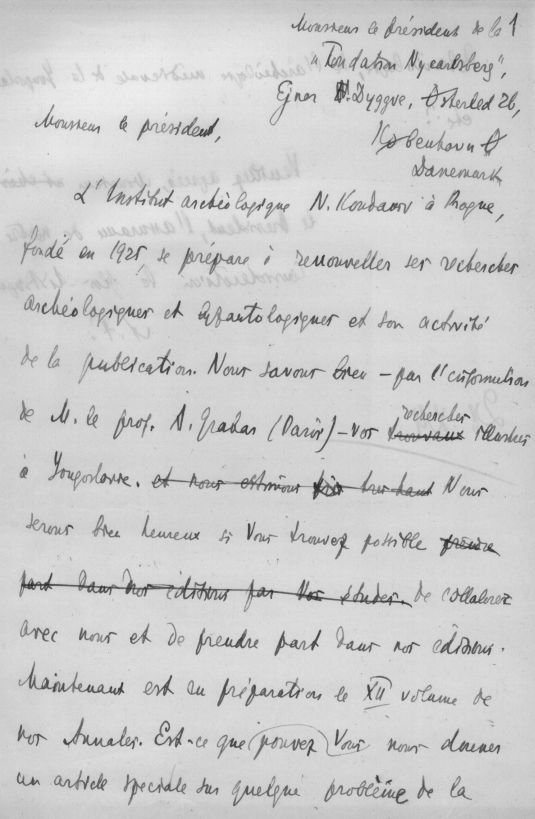 Monsieur le président de la 1
"Fondation Ny carlsberg",
Ejnar Dyggve, Østerled 26,
Monsieur le président,
København Ø
Danemark
L'Institut archéologique N. Kondakov à Prague,
fondé en 1925, se prépare à renouveller ses recherches
archéologiques et byzantologiques et son activité
de la publication. Nous savons bien – par l'information
de M. le prof. A. Grabar (Paris) – vos
recherches
travaux
à Yougoslavie. et nous estimons très haut Nous
serons bien heureux si Vous trouvez possible prendre
part dans nos éditions par Vos études. de collaborer
avec nous et de prendre part dans nos éditions.
Maintenant est en préparation le XII volume de
nos Annales. Est-ce que pouvez Vous nous donner
un article speciale sur quelque problème de la